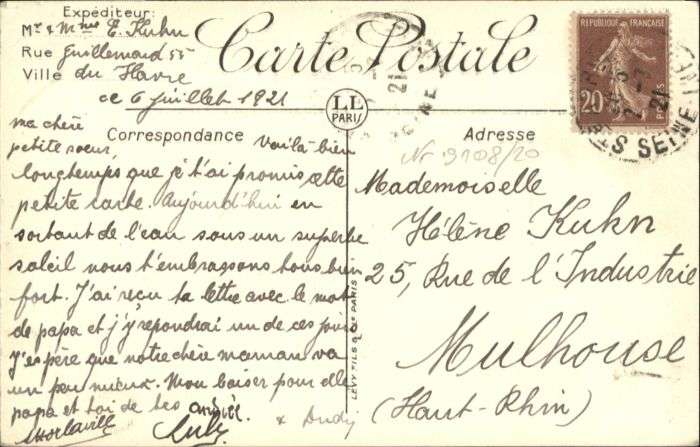 Expéditeur:
Mr & Mme E. Kuhn
Rue Guillemard 55
Ville du Havre
ce 6 juillet 1921
Carte Postale
LL
PARIS
Correspondance
ma chère
petite soeur Voilà bien
longtemps que je t'ai promis cette
petite carte. Aujourd'hui en
sortant de l'eau sous un superbe
soleil nous t'embrassons tous bien
fort. J'ai reçu ta lettre avec le mot
de papa et j'y répondrai un de ces jours
J'espère que notre chère maman va
un peu mieux. Mon baiser pour elle
papa et toi de tes
LEVY FILS & Cie PARIS
Adresse
Nr 9108/20
Mademoiselle
Hélène Kuhn
25, Rue de l'Industrie
Mulhouse
(Haut-Rhin)
REPUBLIQUE FRANÇAISE
20
POSTES
21
SEINE